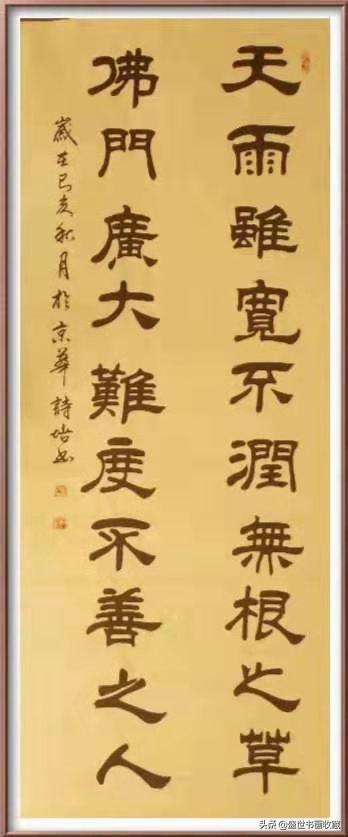 天雨雖寬不潤無根之草
佛門廣大難度不善之人
歲在己亥秋月於京華詩培书
头条@盛世书画收藏